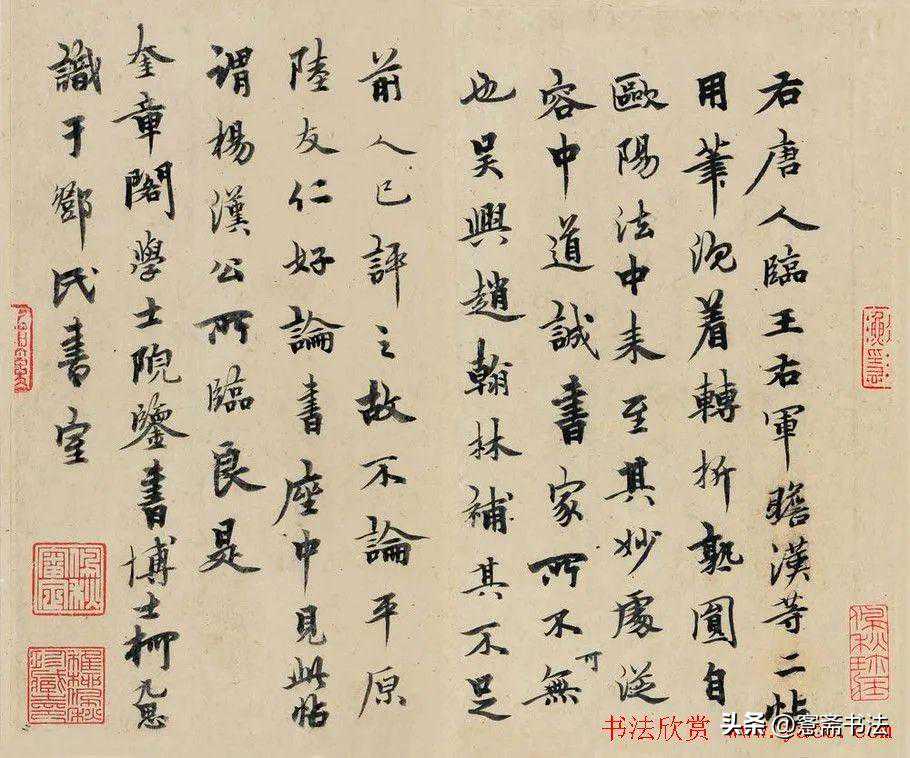 右唐人臨王右軍瞻漢等二帖
用筆沉着轉折熟圓自
歐陽法中来至其妙處從
容中道誠書家所不可無
也吴興趙翰林補其不足
前人已評之故不論平原
陸友仁好論書座中見此帖
謂楊漢公所臨良是
奎章閣學士院鑒書博士柯九思
識于鄧民書室
书法欣赏
头条 @蹇斋书法